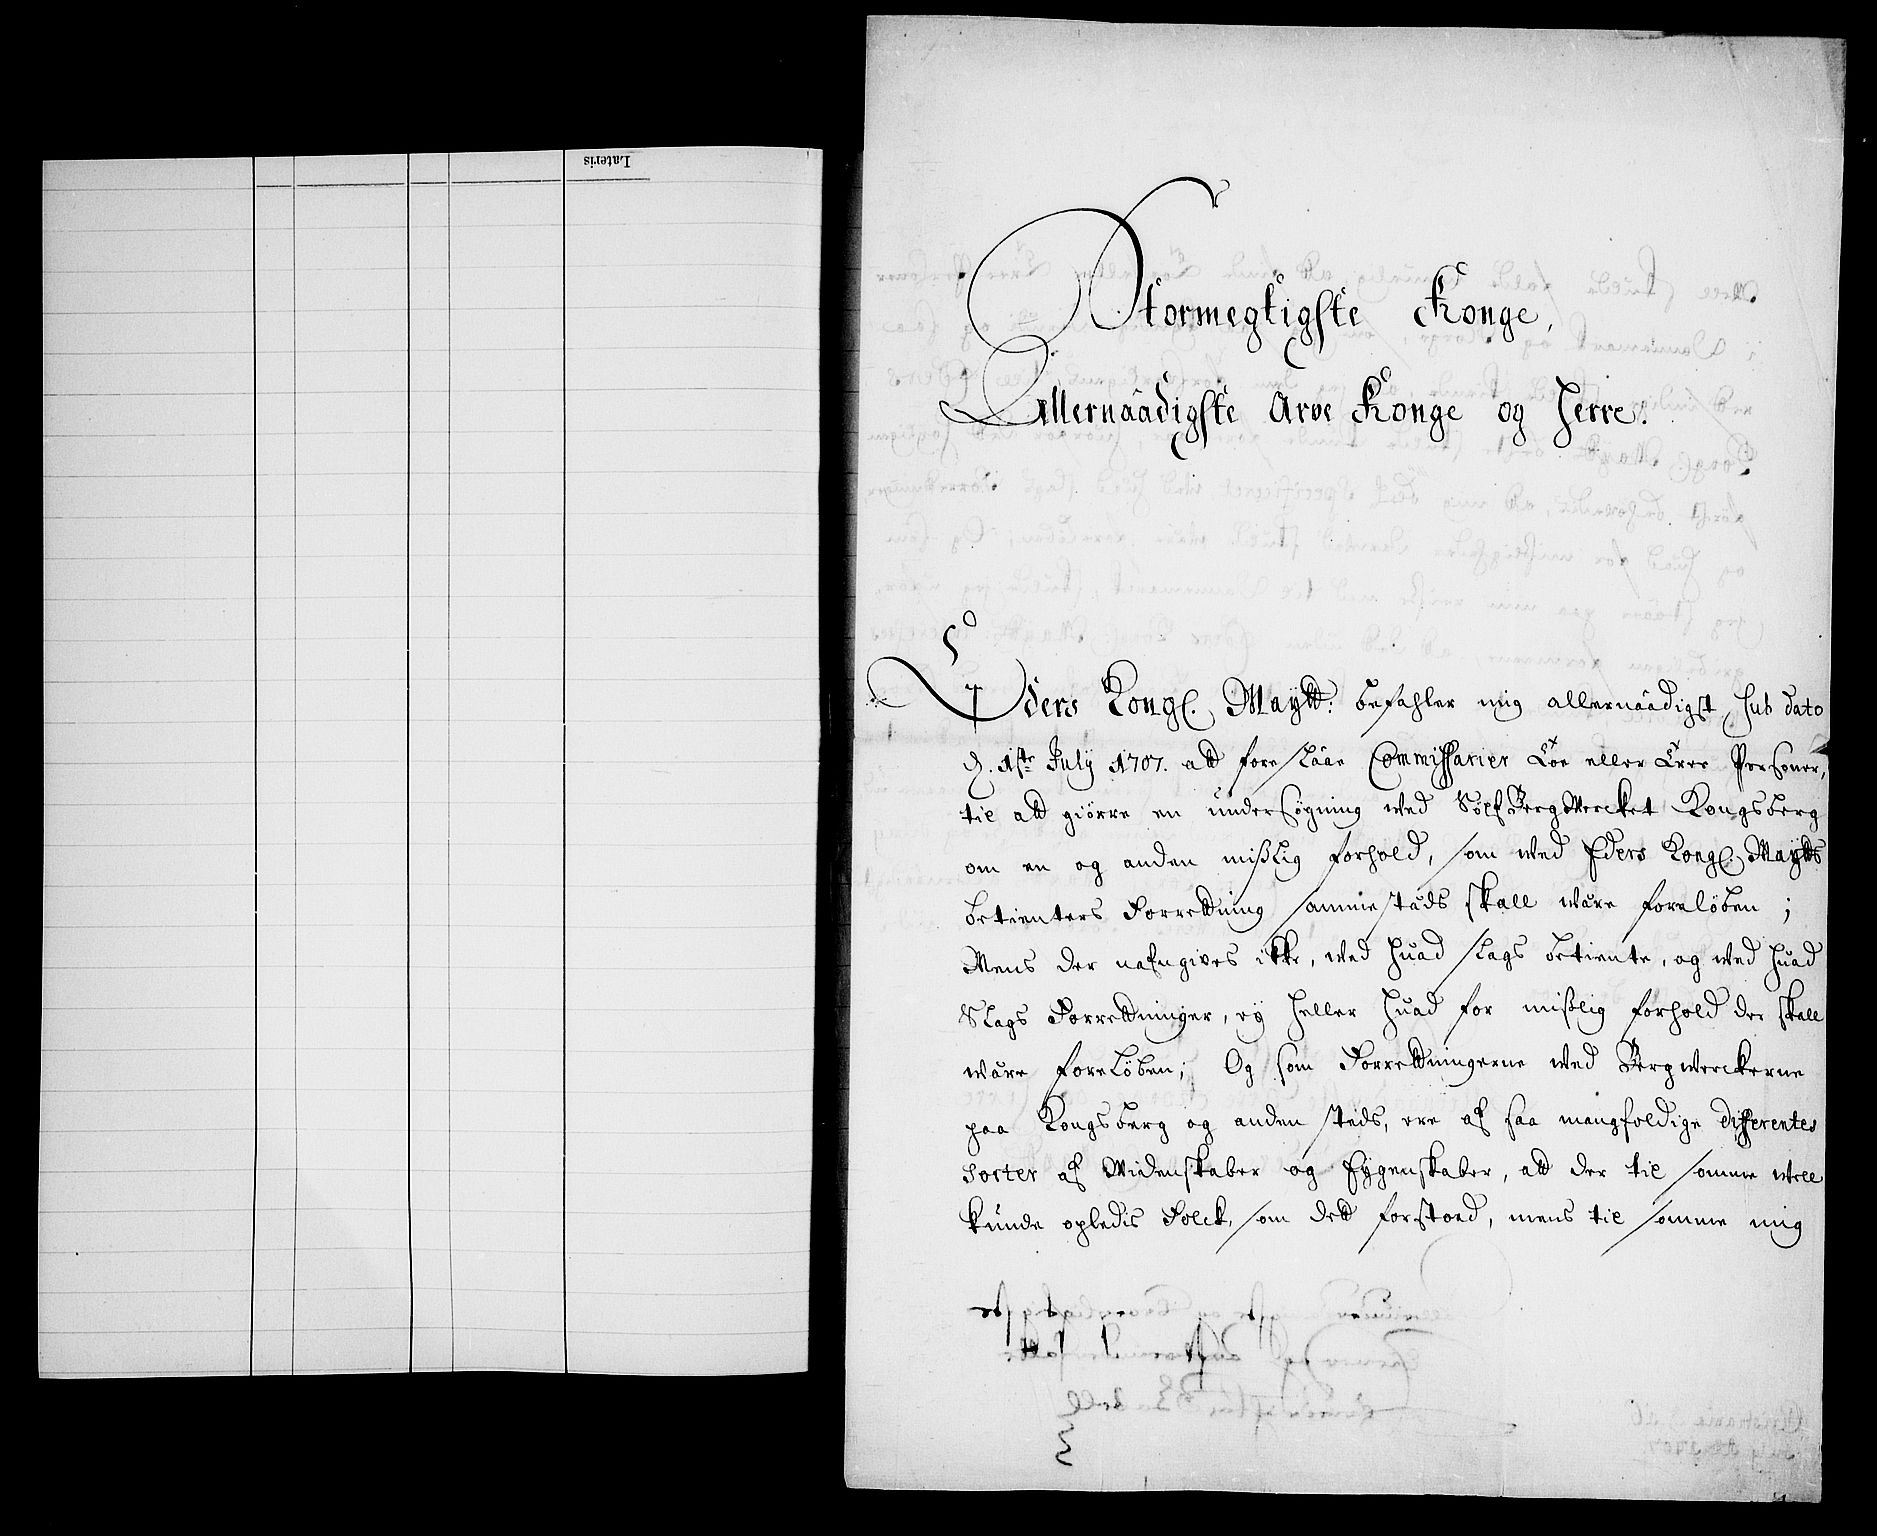 Lateris
Stormegtigste Konge,
Allernaadigste Arve Konge og Herre.
Eders Kongl. Maytt: befahler mig allernaadigst sub dato
d. 1ste July 1707. att foreslaae Commissarier Toe eller Tree Personer,
til att giörre en undersögning wed Sölf BergWercket Kongsberg
om en og anden mißlig forhold, som wed Eders Kongl. Maytts
betienters Forrettning sammestæds skall wære foreløben;
Mens der nafngives ikke, wed huad slags betiente, og wed huad
Slags Forrettninger, ey heller huad for mißlig forhold der skall
wære foreløben; Og som Forrettningerne wed Bergwerckerne
paa Kongsberg og anden steds, ere af saa mangfoldige differentes
Sorter af Widenskaber og Eygenskaber, att der til somme well
kunde opledis Folck, som dett forstoed, mens til somme mig